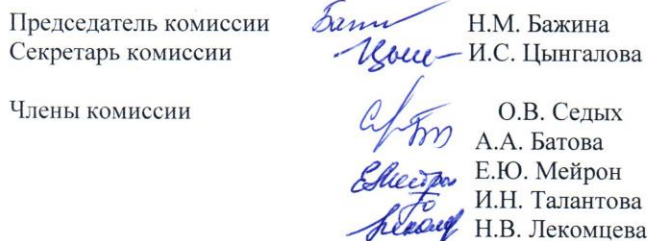 Председатель комиссии Н.М. Бажина
Секретарь комиссии И.С. Цынгалова
Члены комиссии О.В. Седых
А.А. Батова
Е.Ю. Мейрон
И.Н. Талантова
Н.В. Лекомцева